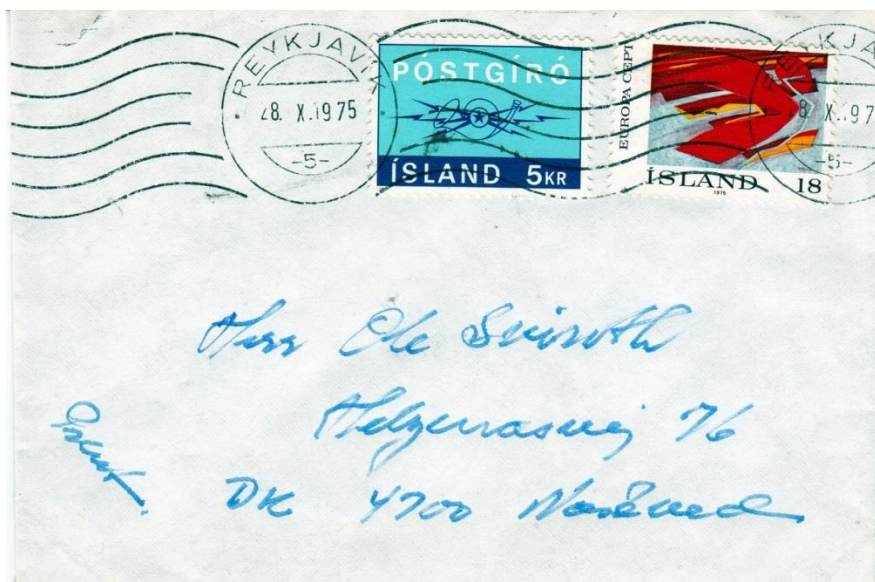 REYKJAVI
28. X.1975
-5-
PÓSTGÍRÓ
ÍSLAND 5KR
EUROPA CEPT
ÍSLAND 18
1975
REYKJA
8. X.197
-5-
Herr Ole
76
DK 4700 Næstved